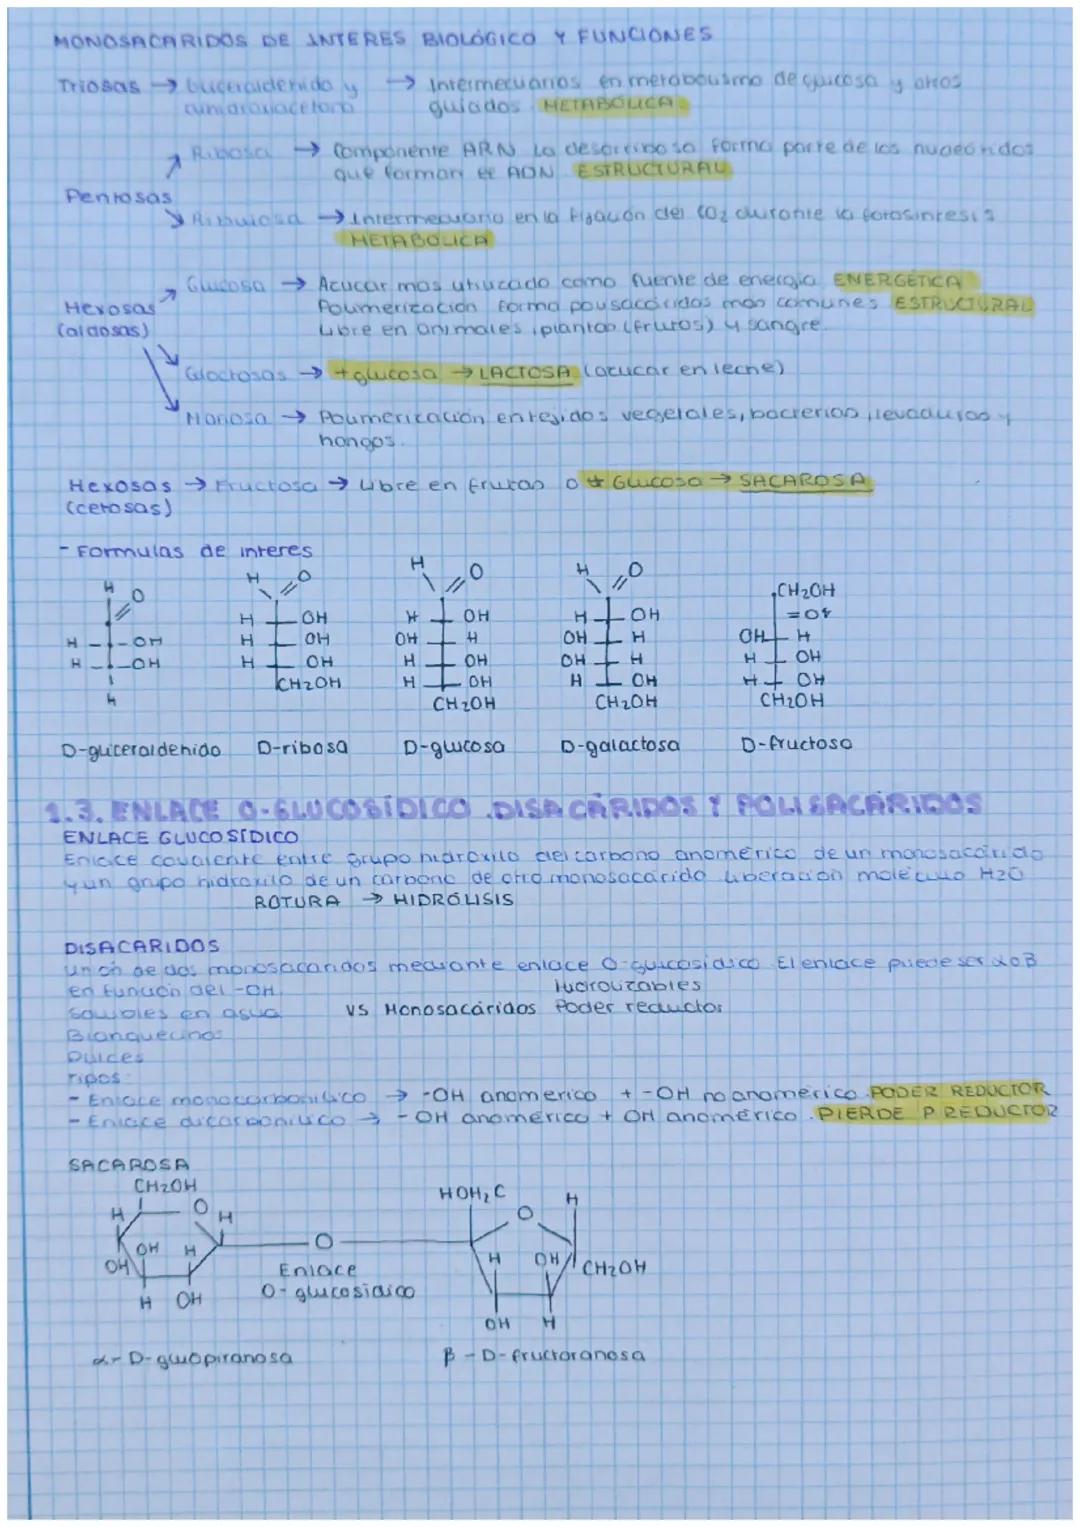 MONOSACARIDOS DE INTERES BIOLÓGICO Y FUNCIONES
Triosas → Gliceraldehido y → Intermediarios en metabolismo de glucosa y otros
dihidroxiacetona glúcidos METABÓLICA
Ribosa → Componente ARN. La desoxiribosa forma parte de los nucleótidos
que forman el ADN ESTRUCTURAL
Pentosas
Ribulosa → Intermediario en la fijación del CO2 durante la fotosíntesis
METABÓLICA
Glucosa → Azucar mas utilizado como fuente de energía ENERGÉTICA
Hexosas Polimerización forma polisacáridos mas comunes ESTRUCTURAL
(aldosas) Libre en animales, plantas (frutos) y sangre.
Galactosas → + glucosa → LACTOSA (azucar en leche)
Manosa → Polimerización en tejidos vegetales, bacterias, levaduras y
hongos.
Hexosas → Fructosa → Libre en frutas o + Glucosa → SACAROSA
(cetosas)
- Formulas de interes
H O H O H O H O CH2OH
H OH H OH H OH =O
H OH H OH OH H OH H OH H
H OH H OH H OH OH H H OH
H CH2OH H OH H OH H OH
CH2OH CH2OH CH2OH
D-gliceraldehido D-ribosa D-glucosa D-galactosa D-fructosa
1.3. ENLACE O-GLUCOSÍDICO. DISACÁRIDOS Y POLISACÁRIDOS
ENLACE GLUCOSÍDICO
Enlace covalente entre grupo hidroxilo del carbono anomérico de un monosacárido
y un grupo hidroxilo de un carbono de otro monosacárido liberación molécula H2O
ROTURA → HIDRÓLISIS
DISACARIDOS
Unión de dos monosacaridos mediante enlace O-glucosídico El enlace puede ser α o β
en función del -OH. Hidrolizables
Solubles en agua VS Monosacáridos Poder reductor
Blanquecinos
Dulces
Tipos:
- Enlace monocarbonílico → -OH anomerico + -OH no anomérico PODER REDUCTOR
- Enlace dicarbonílico → -OH anomérico + OH anomérico. PIERDE P REDUCTOR
SACAROSA
CH2OH HOH2C H
H O H O
OH H O H OH CH2OH
OH Enlace
H OH O-glucosidico OH H
α-D-glucopiranosa β-D-fructoranosa